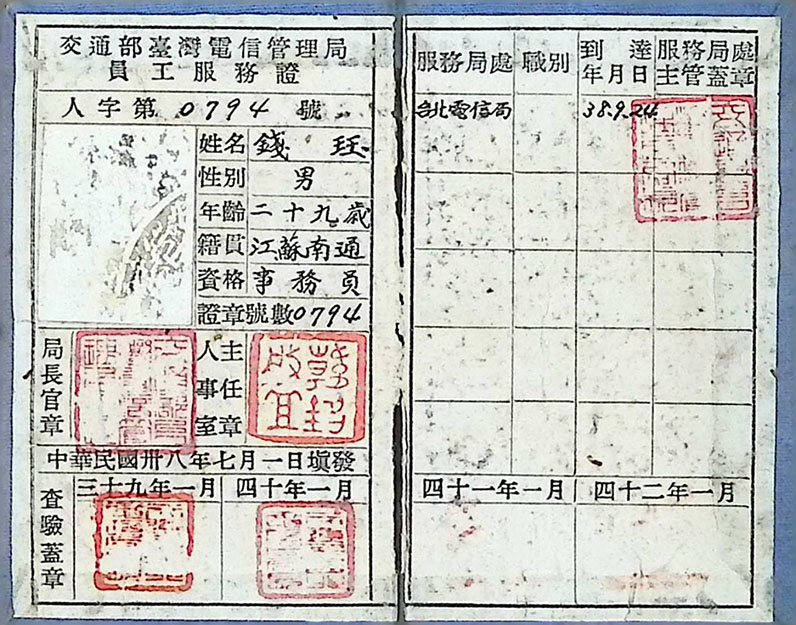 交通部臺灣電信管理局
員工服務證
人字第0794號
姓名 錢珏
性別 男
年齡 二十九歲
籍貫 江蘇南通
資格 事務員
證章號數0794
局長官章
人事室主任章
中華民國卅八年七月一日填發
查驗蓋章
三十九年一月 四十年一月
服務局處 職別 到達年月日 服務局處主管蓋章
台北電信局 38.9.24.
四十一年一月 四十二年一月